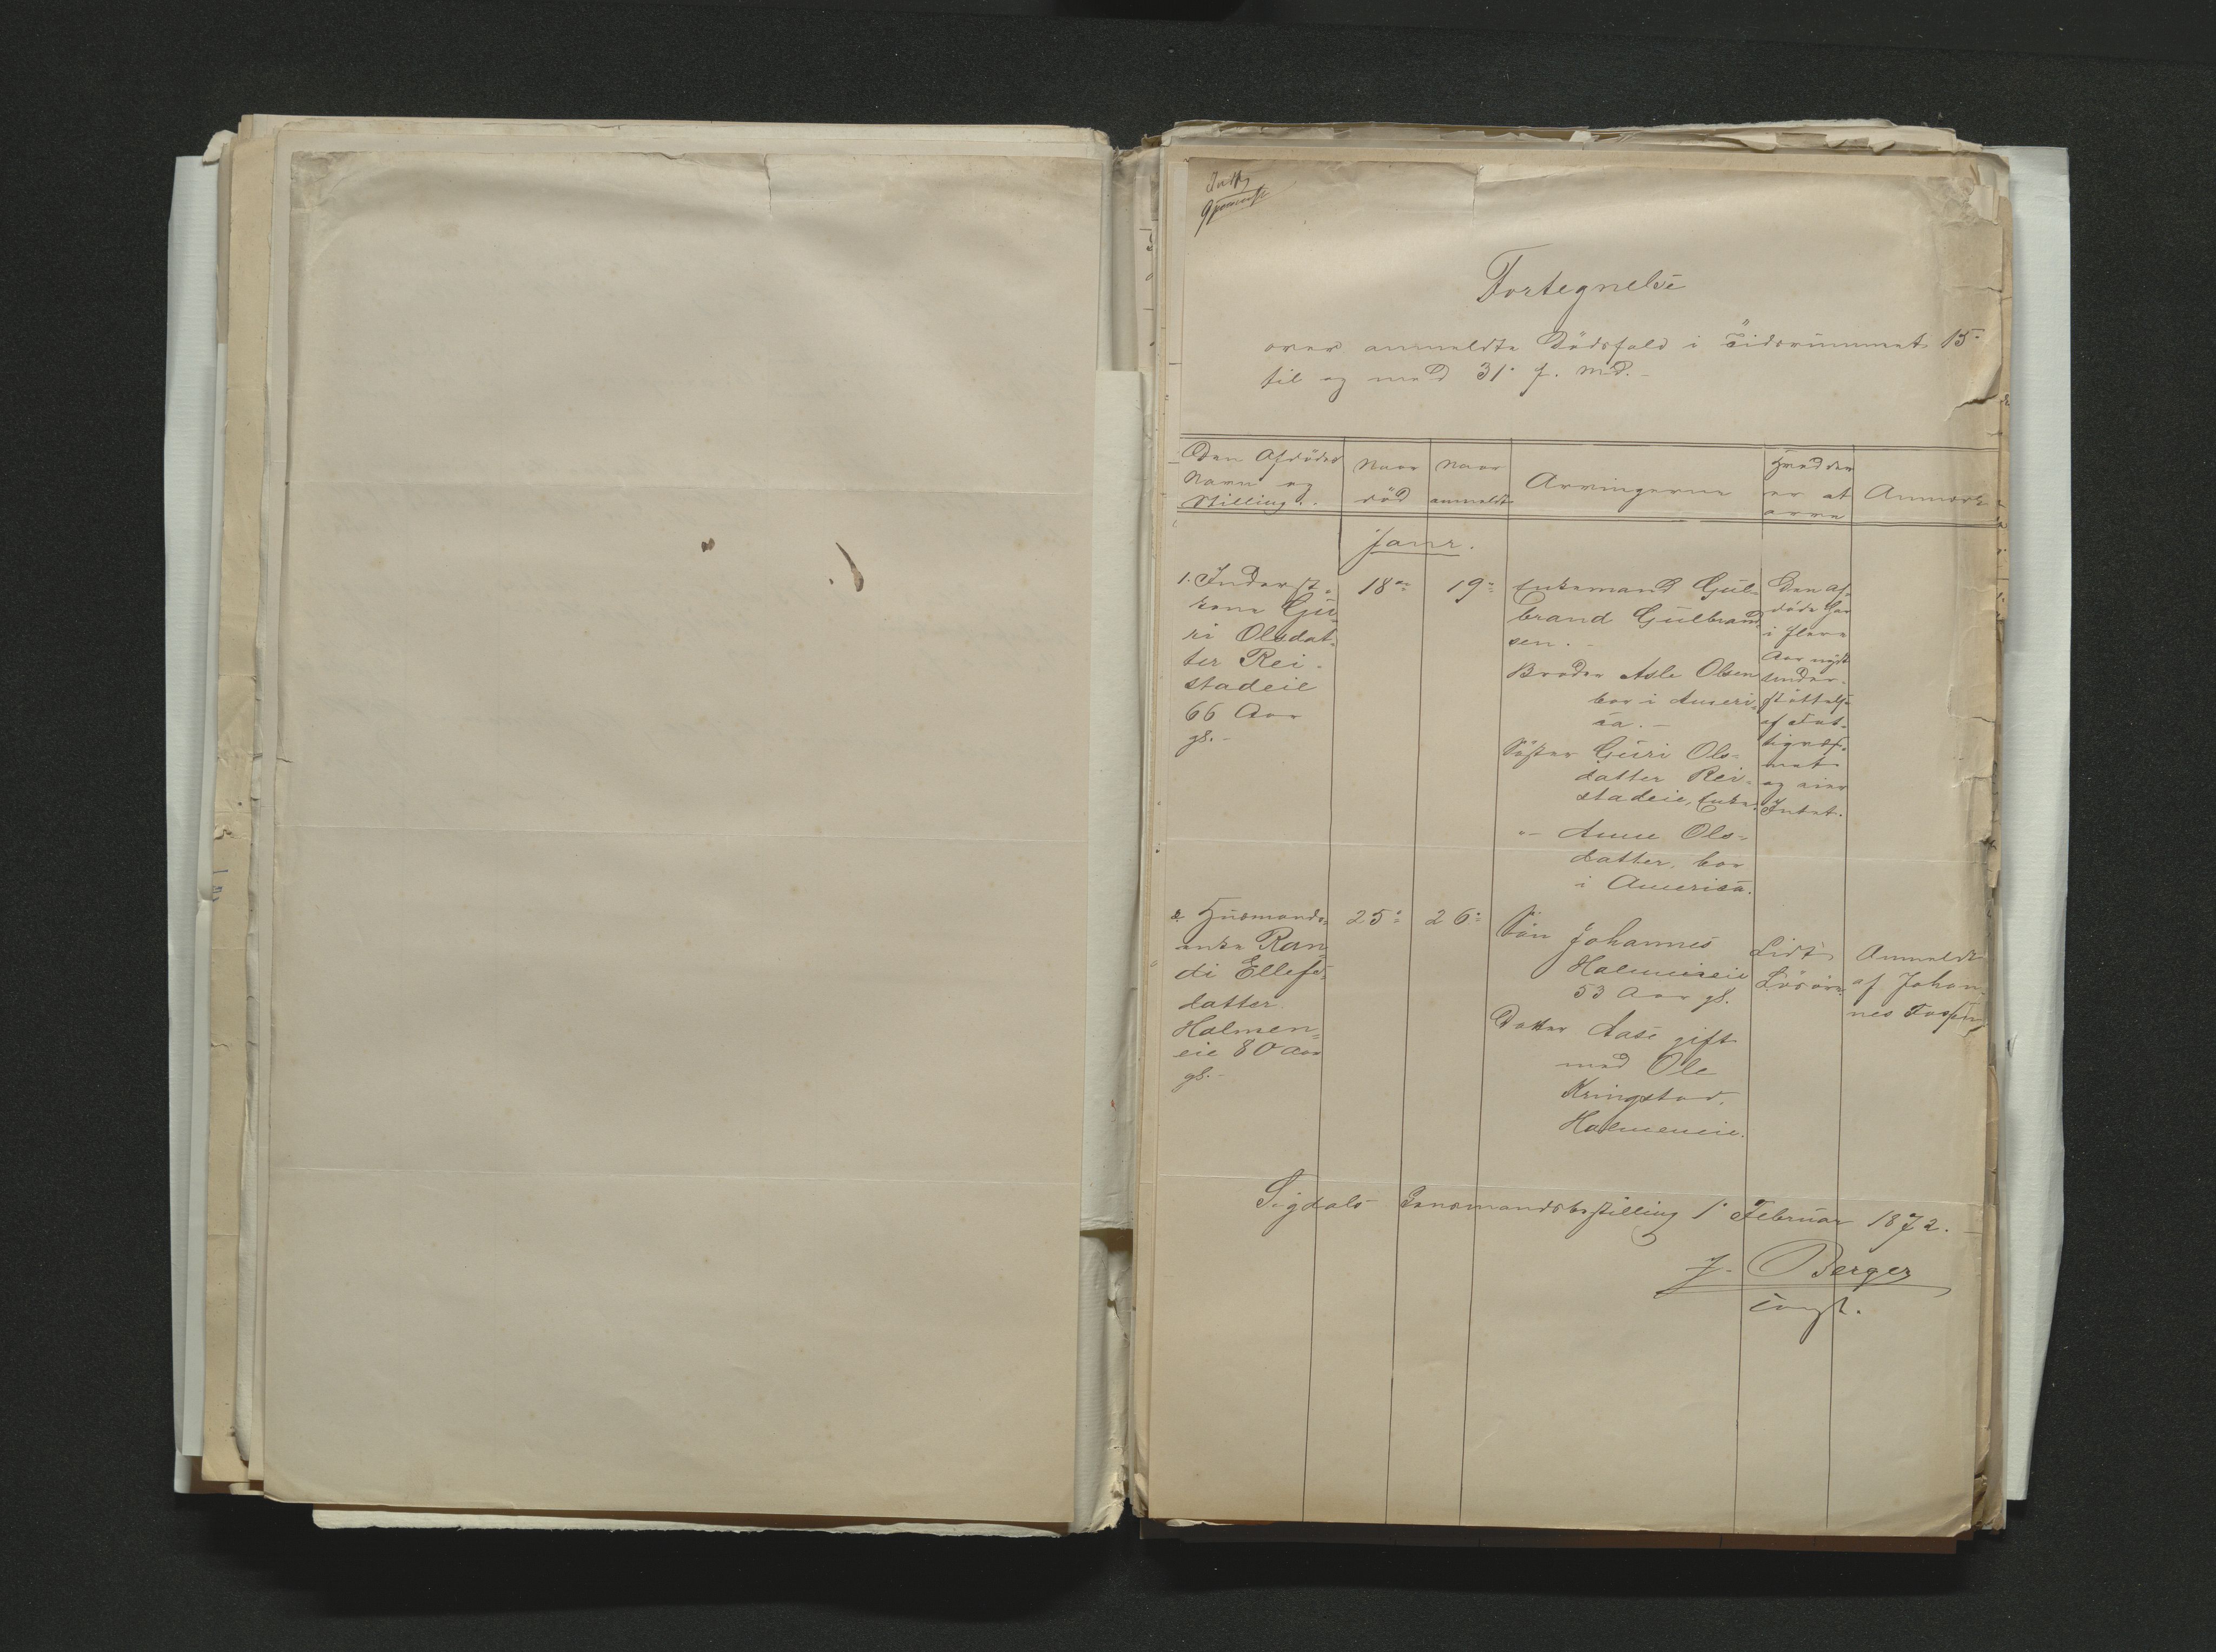 Fortegnelse
over anmeldte Dödsfald i Tidsrummet 15.
til og med 31. f. Md. -
Den Afdödes
Navn og
Stilling.
Naar
död
Naar
anmeldt
Arvingerne
Hvad der
er at
arve
Anmærk
Janr.
1. Inderst-
kone Gu-
ri Olsdat-
ter Rei-
stadeie
66 Aar
gl. -
18de
19.
Enkemand Gul-
brand Gulbrand-
sen. -
Broder Asle Olsen
bor i Ameri-
ca. -
Söster Guri Ols-
datter Rei-
stadeie, Enke.
"- Anne Ols-
datter, bor
i America.
Den Af-
döde har
i flere
Aar nydt
Under-
støttelse
af Fat-
tigvæs-
enet
og eier
Intet.
2. Husmands-
enke Ran-
di Ellefs-
datter
Halmen-
eie 80 Aar
gl. -
25.
26.
Sön Johannes
Halmeneie
53 Aar gl.
Datter Aase gift
med Ole
Kringstad,
Halmeneie.
Lidt
Lösöre.
Anmeldt
af Johan-
nes
Sigdals Lensmandsbestilling 1. Februar 1872. -
J. Berger